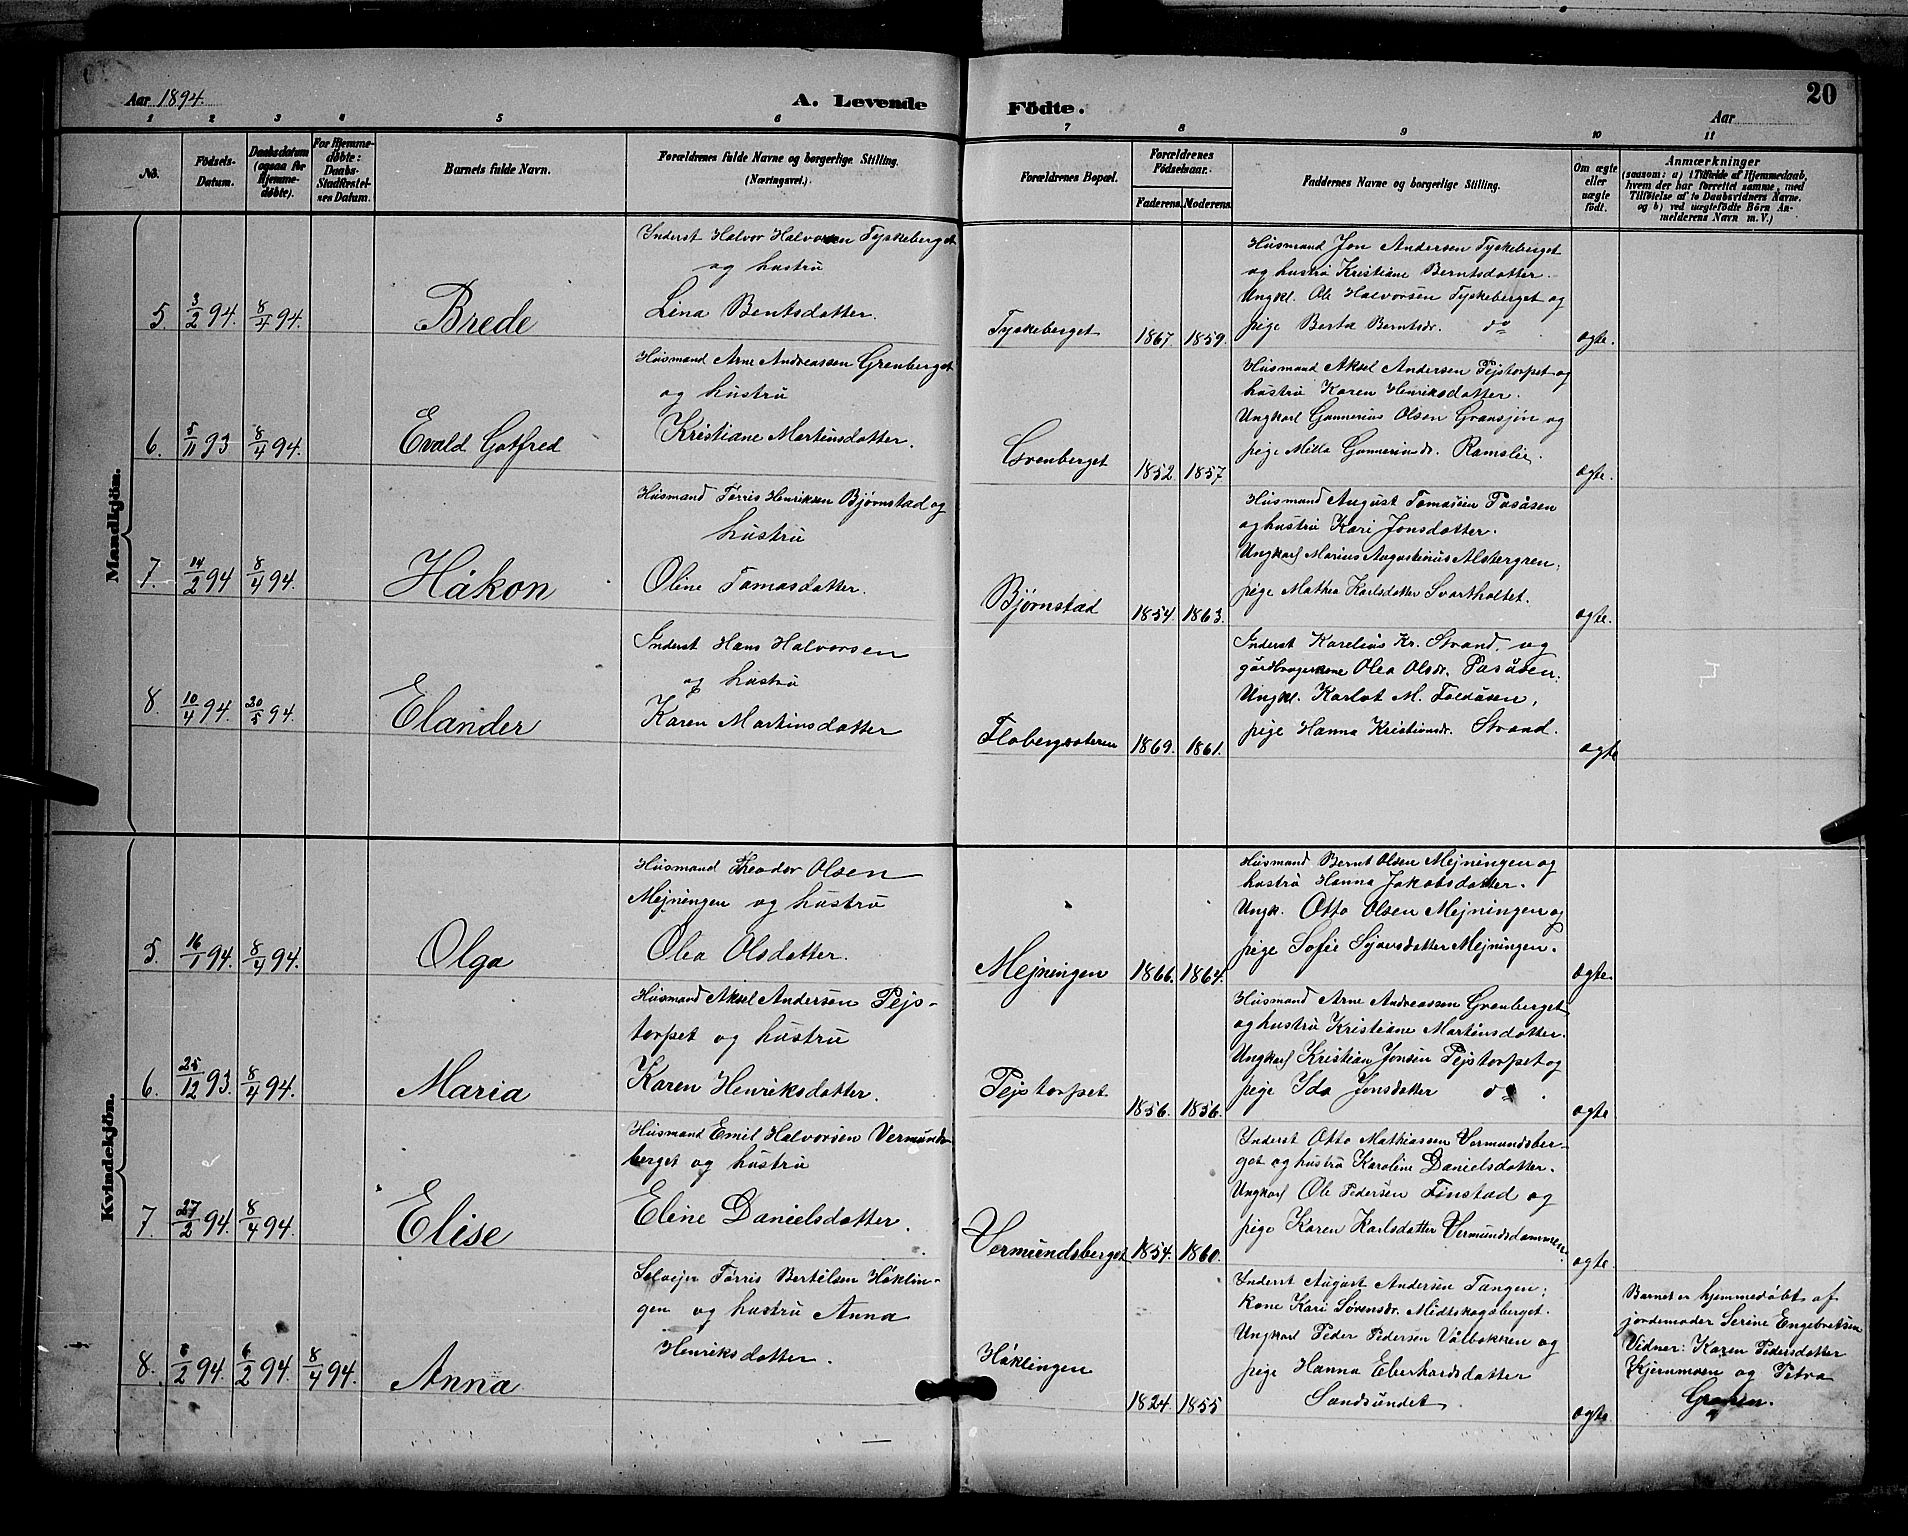 Aar 1894.
A. Levende
Födte.
20
Aar
1 2 3 4 5 6 7 8 9 10 11
No.
Födsels-
Datum.
Daabsdatum
(ogsaa for
Hjemme-
døbte).
For Hjemme-
døbte:
Daabs-
Stadfæstel-
ses Datum.
Barnets fulde Navn.
Forældrenes fulde Navne og borgerlige Stilling.
(Næringsvei.)
Forældrenes Bopæl.
Forældrenes
Fødselsaar.
Faderens. Moderens.
Faddernes Navne og borgerlige Stilling.
Om ægte
eller
uægte
født.
Anmærkninger
(saasom: a) i Tilfælde af Hjemmedaab,
hvem der har forrettet samme, med
Tilføielse af to Daabsvidners Navne.
og b) ved uægtefødte Börn An-
melderens Navn m. V.)
Mandkjön.
5. 3/2 94. 8/4 94. Brede
Inderst Halvor Halvorsen Tyskeberget
og hustru
Lina Bentsdatter.
Tyskeberget 1867 1859.
Husmand Jon Andersen Tyskeberget
og hustru Kristiane Berntsdatter.
Ungkl. Ole Halvorsen Tyskeberget og
pige Berta Berntsdr. do
ægte.
6. 5/11 93 8/4 94. Evald Gotfred
Husmand Arne Andreassen Grenberget
og hustru
Kristiane Martinsdatter.
Grenberget 1852 1857
Husmand Aksel Andersen Pejstorpet og
hustru Karen Henriksdatter.
Ungkarl Gunnerius Olsen Gransjøn og
pige Milla Gunneriusdr. Ramslie.
ægte.
7. 14/2 94 8/4 94. Håkon
Husmand Tørris Henriksen Bjørnstad og
hustru
Oline Tomasdatter.
Bjørnstad 1854 1863.
Husmand August Tomassen Pasåsen
og hustru Kari Jonsdatter.
Ungkarl Marius Augustinus Alsbergren;
pige Mathea Karlsdatter Svartholtet.
ægte.
8. 10/4 94. 20/5 94. Elander
Inderst Hans Halvorsen
og hustru
Karen Martinsdatter
Flobergsæteren 1869. 1861.
Inderst Karelius Kr. Strand, og
gårdbrugerkone Olea Olsdr. Pasåsen;
Ungkl. Karlot M. Foldåsen,
pige Hanna Kristiansdr. Strand.
ægte
Kvindekjön.
5. 16/1 94. 8/4 94. Olga
Husmand Theodor Olsen
Mejningen og hustru
Olea Olsdatter.
Mejningen 1866. 1864.
Husmand Bernt Olsen Mejningen og
hustru Hanna Jakobsdatter.
Ungk. Otto Olsen Mejningen og
pige Sofie Sjøversdatter Mejningen.
ægte.
6. 25/12 93. 8/4 94. Maria
Husmand Aksel Andersen Pejs-
torpet og hustru
Karen Henriksdatter.
Pejstorpet 1856. 1856.
Husmand Arne Andreassen Grenberget
og hustru Kristiane Martinsdatter.
Ungkarl Kristian Jonsen Pejstorpet og
pige Ida Jonsdatter do.
ægte
7. 27/2 94. 8/4 94. Elise
Husmand Emil Halvorsen Vermunds-
berget og hustru
Eline Danielsdatter.
Vermundsberget 1854. 1860.
Inderst Otto Mathiassen Vermundsber-
get og hustru Karoline Danielsdatter.
Ungkarl Ole Pedersen Finstad og
pige Karen Karlsdatter Vermundsdammen.
ægte.
8. 5/2 94. 6/2 94. 8/4 94. Anna
Selvejer Tørris Bertelsen Håklin-
gen og hustru Anna
Henriksdatter.
Håklingen 1824. 1855
Inderst August Andersen Tangen;
Kone Kari Sørensdr. Midtskogsberget.
Ungkarl Peder Pedersen Vålbakken og
pige Hanna Eberhardsdatter
Sandsundet.
ægte
Barnet er hjemmedøbt af
jordemoder Serine Engebretsen
Vidner: Karen Pedersdatter
Kjernmoen og Petra